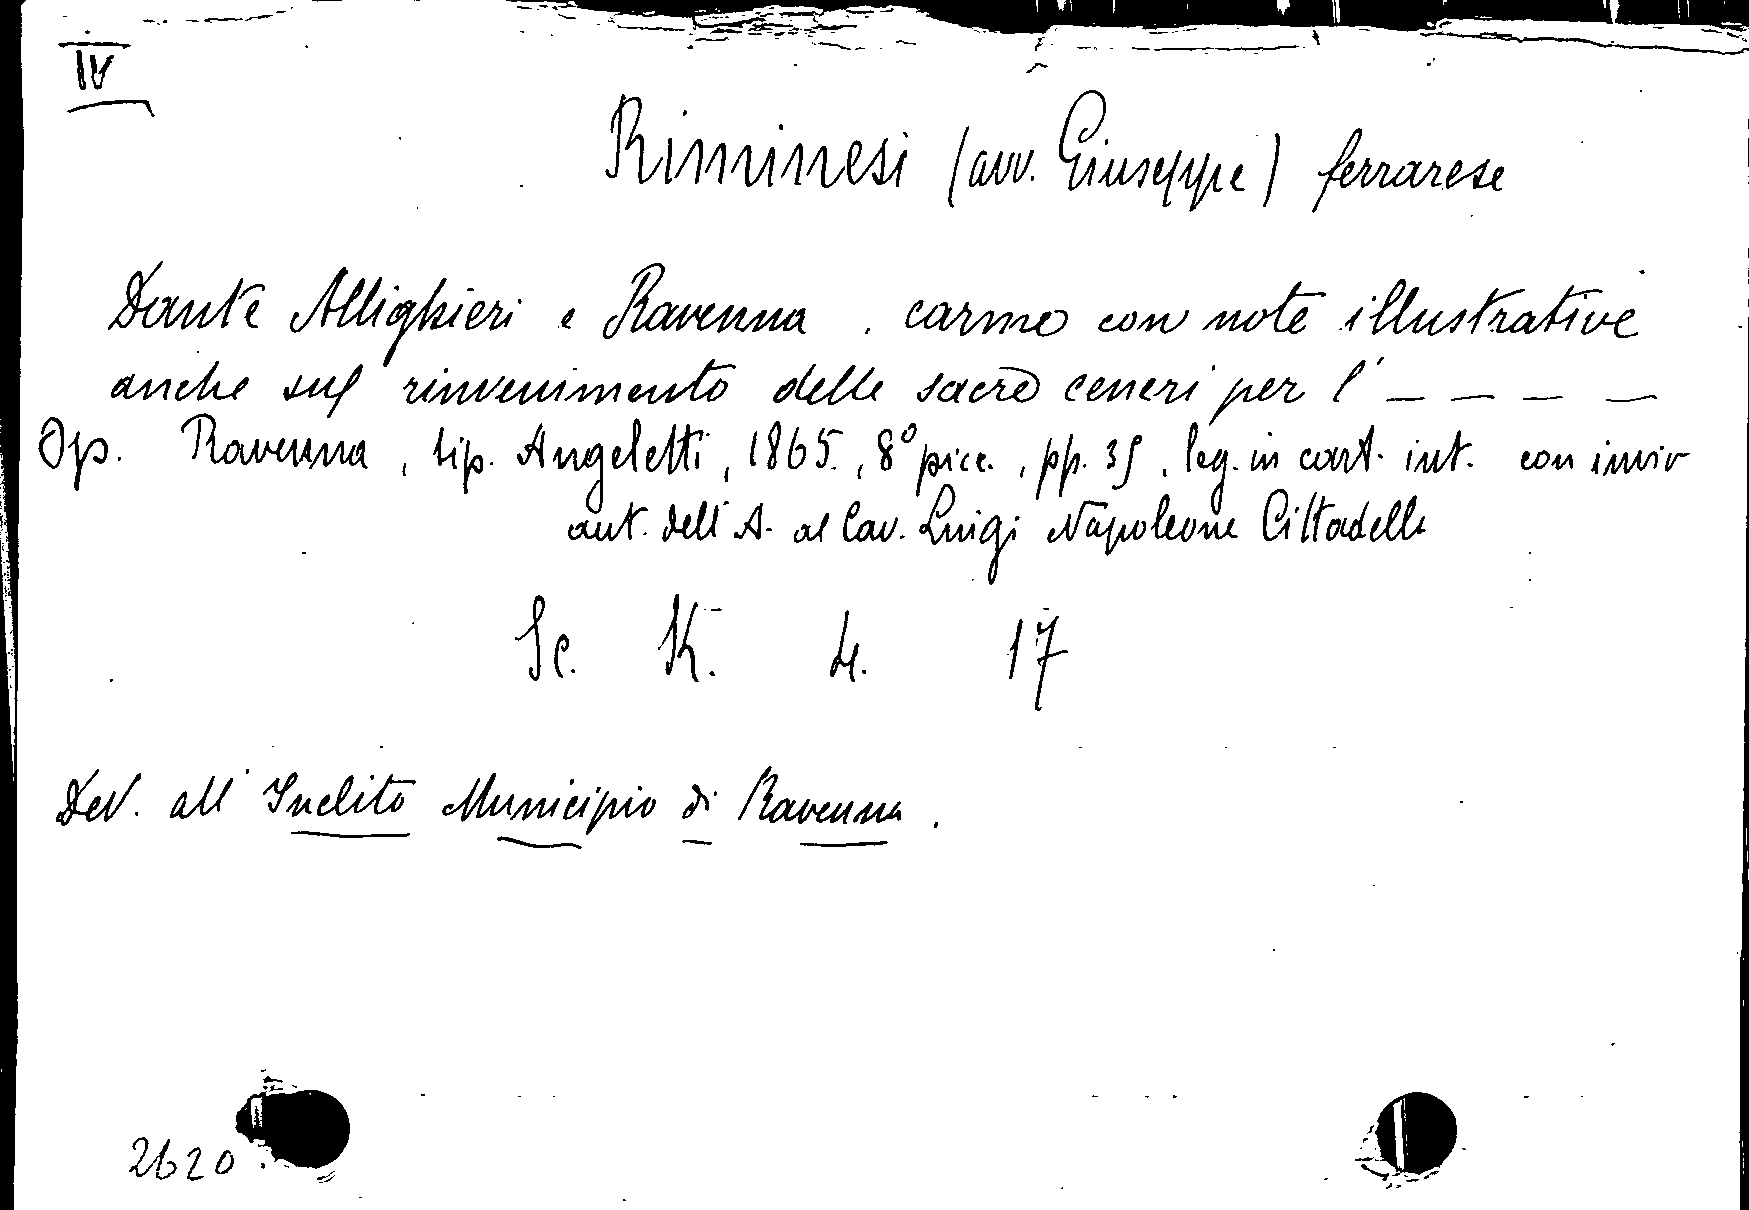 IV
Riminesi (avv. Giuseppe) ferrarese
Dante Allighieri e Ravenna. carme con note illustrative
anche sul rinvenimento delle sacre ceneri per l' _ _ _ _
Op. Ravenna, tip. Angeletti, 1865., 8° picc., pp. 35, leg. in cart. int. con invio
aut. dell'A. al Cav. Luigi Napoleone Cittadella
Sc. K. 4. 17
Ded. all'Inclito Municipio di Ravenna.
2620